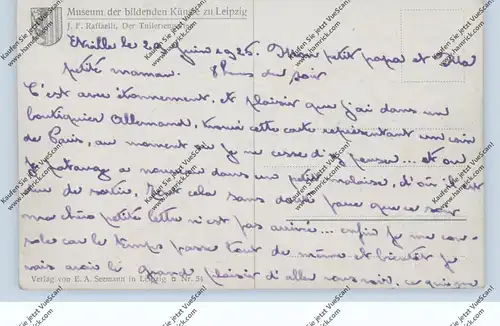 Museum der bildenden Künste zu Leipzig
J. F. Raffaelli, Der Tuilerien
le 29 juin 1926. Mon petit papa et Ma
petite maman. 8 heures du soir
C'est avec étonnement, et plaisir que j'ai dans un
boutiquier Allemand, trouvé cette carte représentant un coin
de Paris, au moment où je ne cesse d'y penser... et on
a nouveau dans une petite malaise, d'où il est
de sortir. Tout cela sans doute parce que ce soir
ma chère petite lettre n'est pas arrivée... enfin je me con-
sole car le temps passe tout de même et bientôt je
vais avoir le grand plaisir d'aller vous voir, ce qui me
Verlag von E. A. Seemann in Leipzig Nr. 54
Kaufen Sie jetzt / Buy now
www.hamrick.com